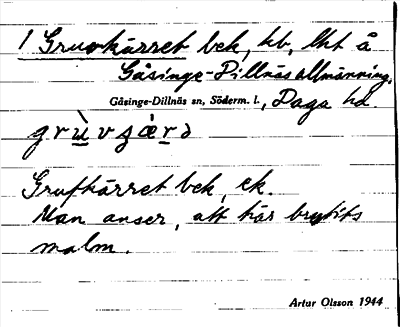 1 Gruvkärret bek, hb, lht å
Gåsinge-Dillnäs allmänning,
Gåsinge-Dillnäs sn, Söderm. l., Daga hd
Grufkärret bek, ek.
Man anser, att här brytits
malm.
Artur Olsson 1944